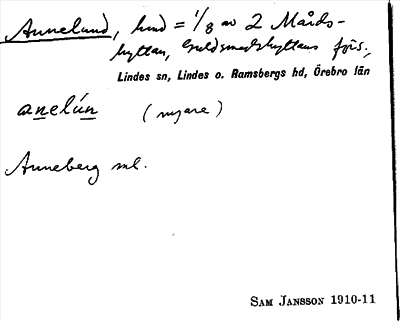 Annelund, hmd = 1/8 av 2 Mårds-
hyttan, Guldsmedshyttans förs.,
Lindes sn, Lindes o. Ramsbergs hd, Örebro län
anelún (nyare)
Anneberg ml.
SAM JANSSON 1910-11